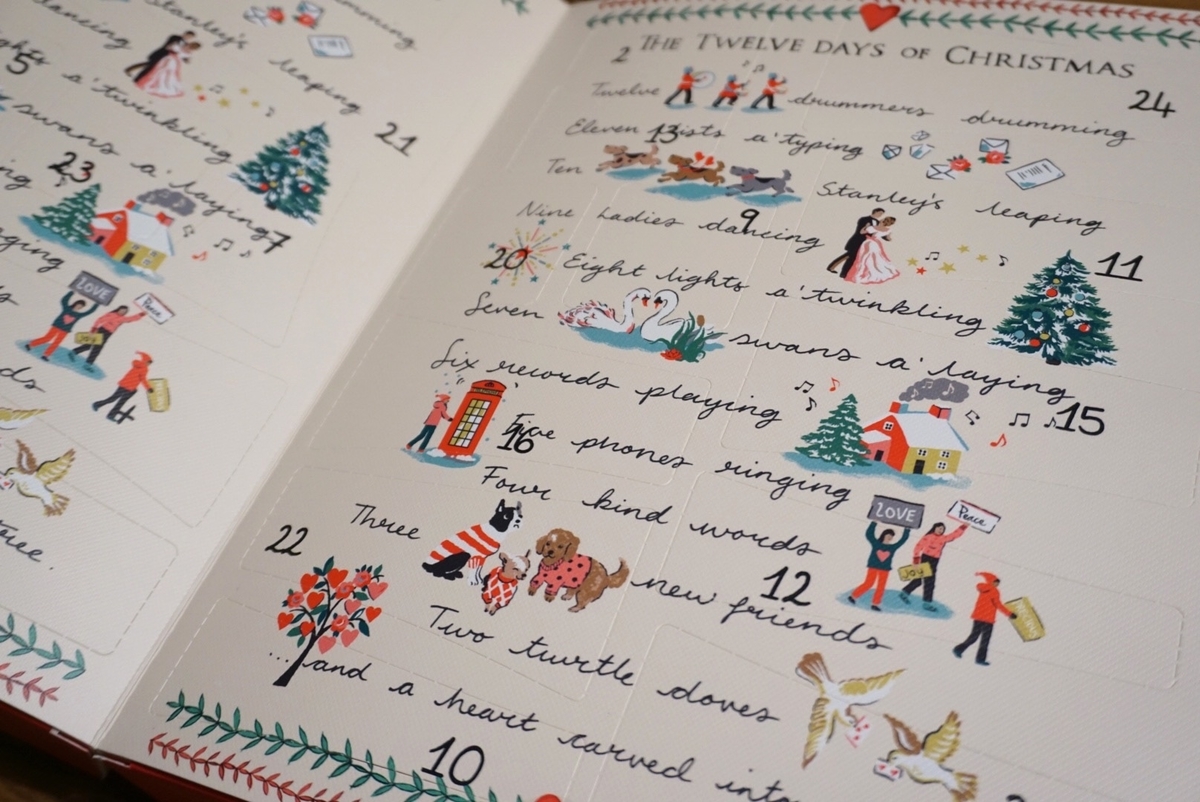 dancing
Stanley's
leaping
drumming
5
a'twinkling
21
swans a'laying
23
7
LOVE
Peace
Joy
4
tree.
THE TWELVE DAYS OF CHRISTMAS
2
24
Twelve drummers drumming
Eleven 13 a'typing
Ten Stanley's leaping
Nine ladies dancing
9
11
20
Eight lights a'twinkling
Seven swans a'laying
Six records playing
15
16
Five phones ringing
Four kind words
LOVE
Peace
Joy
Three new friends
12
22
Two turtle doves
...and a heart carved into
10